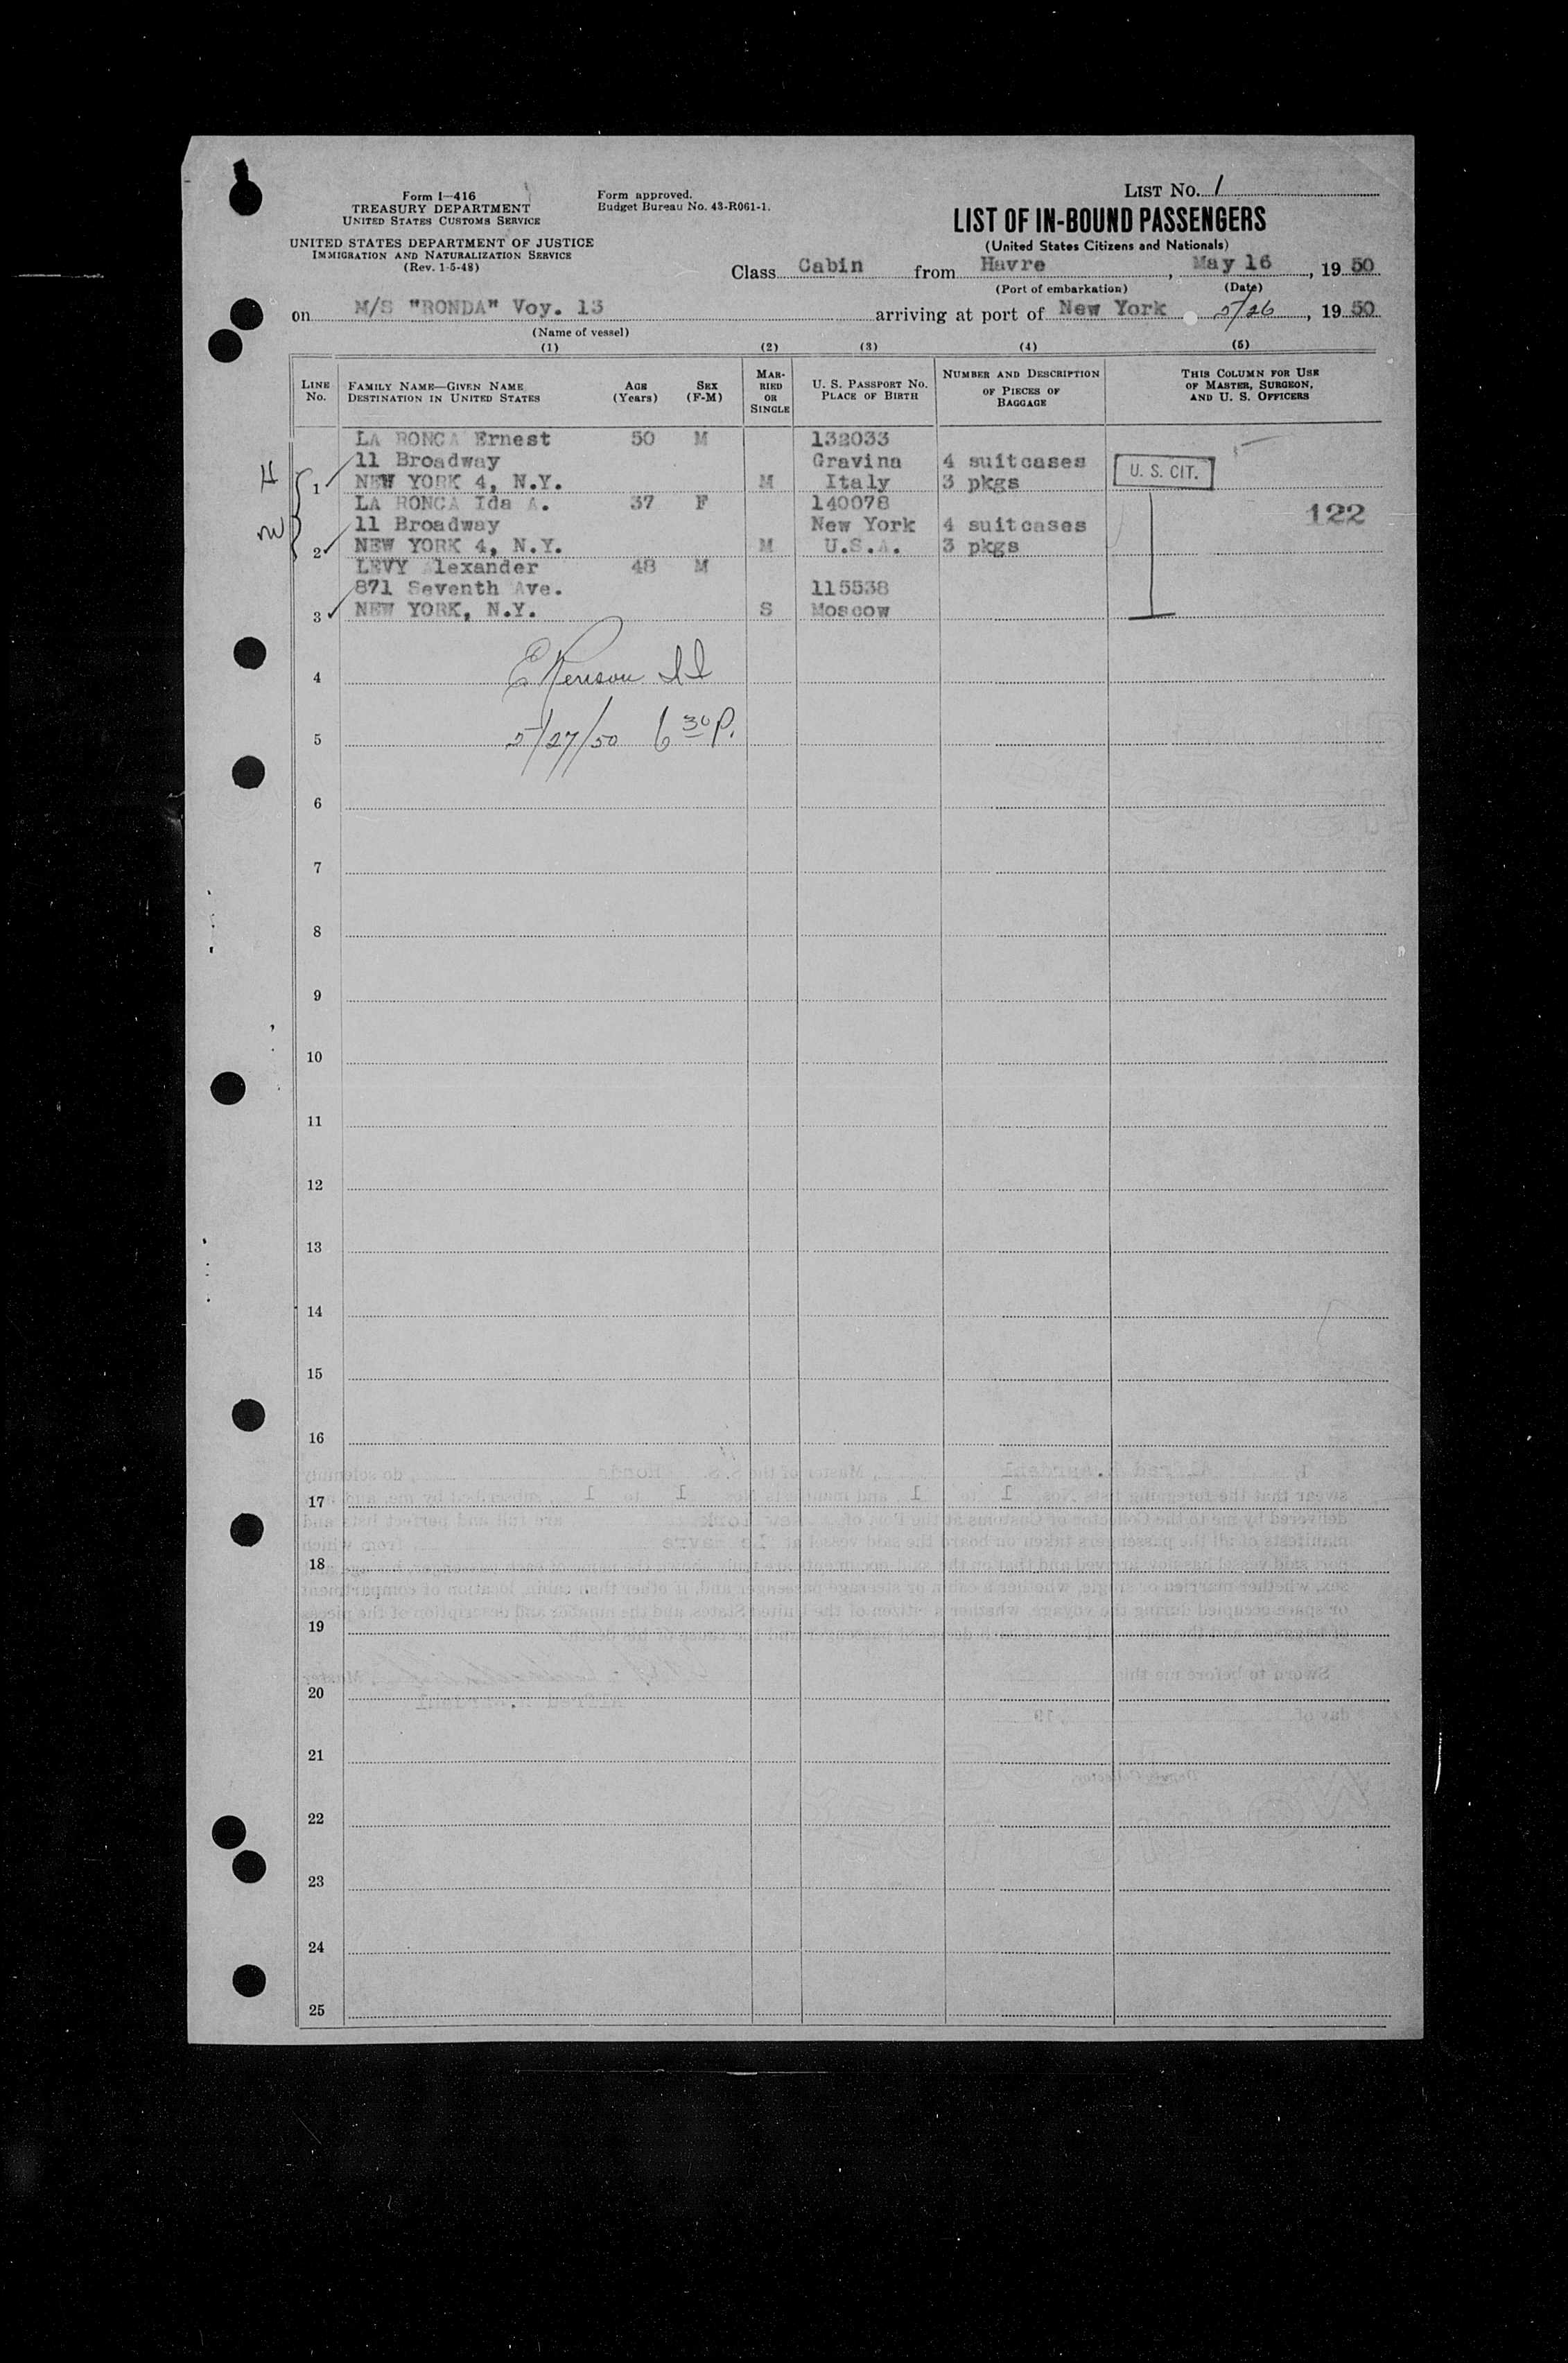 LIST NO. 1
Form I—416
TREASURY DEPARTMENT
UNITED STATES CUSTOMS SERVICE
Form approved.
Budget Bureau No. 43-R061-1.
UNITED STATES DEPARTMENT OF JUSTICE
IMMIGRATION AND NATURALIZATION SERVICE
(Rev. 1-5-48)
LIST OF IN-BOUND PASSENGERS
(United States Citizens and Nationals)
Class Cabin from Havre, May 16, 19 50
(Port of embarkation) (Date)
on M/S "RONDA" Voy. 13 arriving at port of New York 5/26, 19 50
(Name of vessel)
(1) (2) (3) (4) (5)
LINE No. FAMILY NAME—GIVEN NAME DESTINATION IN UNITED STATES AGE (Years) SEX (F-M) MARRIED OR SINGLE U. S. PASSPORT NO. PLACE OF BIRTH NUMBER AND DESCRIPTION OF PIECES OF BAGGAGE THIS COLUMN FOR USE OF MASTER, SURGEON, AND U. S. OFFICERS
LA RONCA Ernest 50 M 132033
11 Broadway Gravina 4 suitcases U. S. CIT.
H 1 NEW YORK 4, N.Y. M Italy 3 pkgs
LA RONCA Ida A. 37 F 140078
W 11 Broadway New York 4 suitcases 122
2 NEW YORK 4, N.Y. M U.S.A. 3 pkgs
LEVY Alexander 48 M
871 Seventh Ave. 115538
3 NEW YORK, N.Y. S Moscow
4
5 5/27/50 6 30 P.
6
7
8
9
10
11
12
13
14
15
16
17
18
19
20
21
22
23
24
25